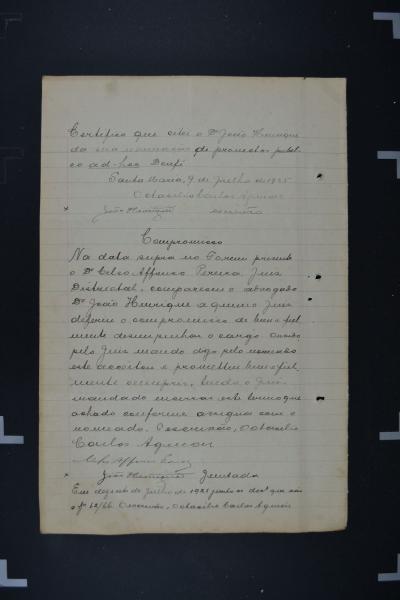 Certifico que citei o Dr João Henrique
da sua nomeação de promotor publi
co ad-hoc. Dou fé
Santa Maria, 9 de Julho de 1925
Octacilio Carlos Aguiar
João Henrique escrivão
Compromisso
Na data supra no Forum presente
o Dr Celso Affonso Pereira Juiz
Districtal, compareceu o advogado
Dr João Henrique a quem o Juiz
deferiu o compromisso de bem e fiel
mente desempenhar o cargo
pelo Juiz pelo nomeado
este acceitou e prometteu bem e fiel
mente cumprir, tendo o Juiz
mandado lavrar este termo que
achado conforme assigna com o
nomeado. O escrivão, Octacilio
Carlos Aguiar
Celso Affonso
João Henrique Juntada
Em de Julho de 1925 junto os que são
o fs 62/66 O escrivão, Octacilio Carlos Aguiar